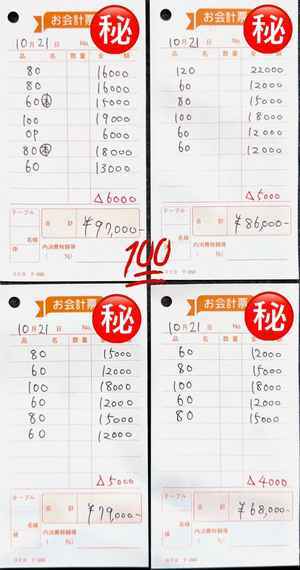 お会計票
㊙
10月21日 No.
品 名 数量 金 額
80 16000
80 16000
60㊍ 15000
100 19000
OP 6000
80㊍ 18000
60 13000
△6000
テーブル 合 計 ¥97,000-
名様
係 内消費税額等
( %)
お会計票
㊙
10月21日 No.
品 名 数量 金 額
120 22000
60 12000
80 15000
100 18000
60 12000
60 12000
△5000
テーブル 合 計 ¥86,000-
名様
係 内消費税額等
( %)
100
お会計票
㊙
10月21日 No.
品 名 数量 金 額
80 15000
60 12000
100 18000
60 12000
80 15000
60 12000
△5000
テーブル 合 計 ¥79,000-
名様
係 内消費税額等
( %)
お会計票
㊙
10月21日 No.
品 名 数量 金 額
60 12000
80 15000
100 18000
60 12000
80 15000
△4000
テーブル 合 計 ¥68,000-
名様
係 内消費税額等
( %)